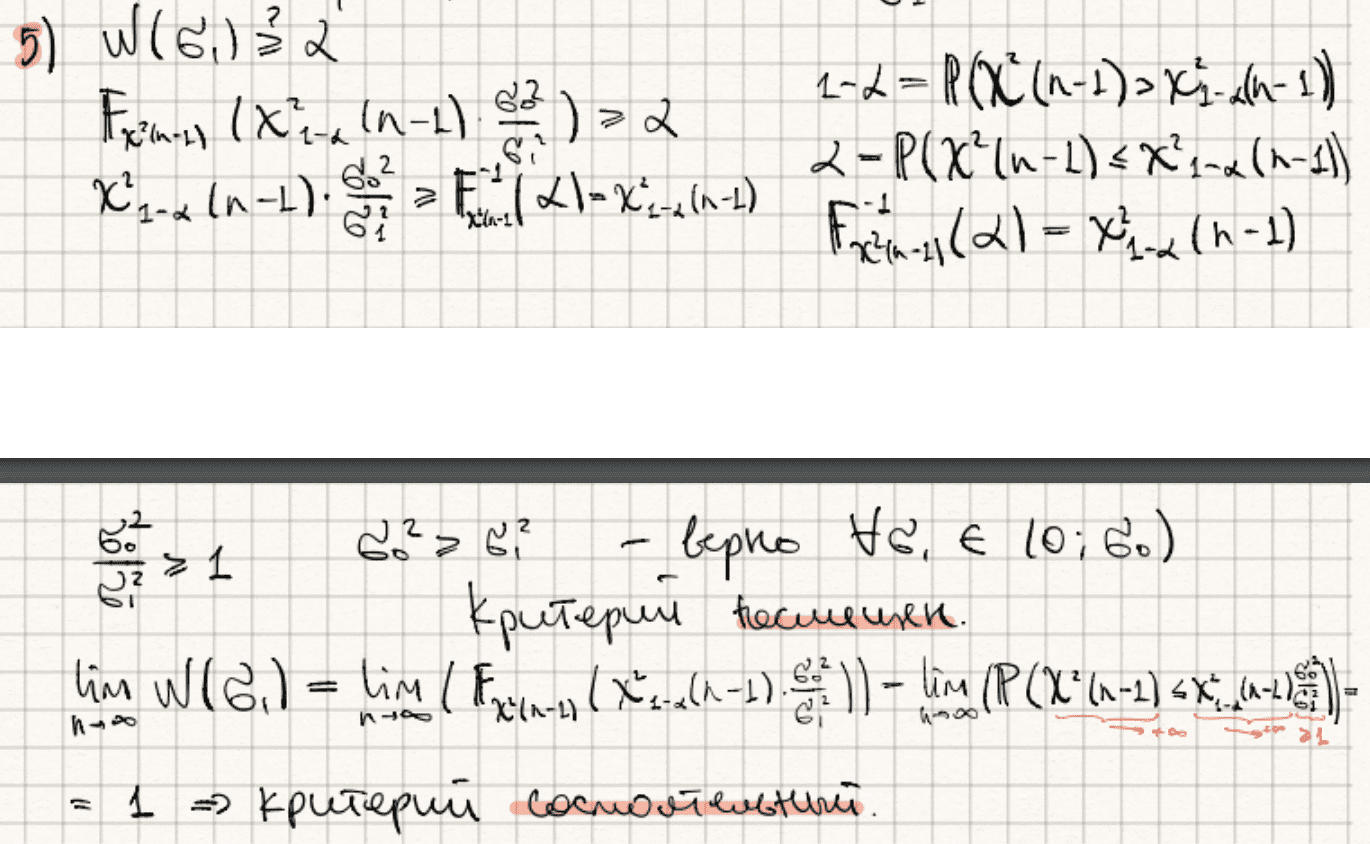 5) W(σ₁) ≥? α
F_χ²(n-1) (χ²_1-α (n-1) · σ₀²/σ₁²) ≥ α
χ²_1-α (n-1) · σ₀²/σ₁² ≥ F⁻¹_χ²(n-1) (α) = χ²_1-α (n-1)
1-α = P(χ²(n-1) > χ²_1-α (n-1))
α = P(χ²(n-1) ≤ χ²_1-α (n-1))
F⁻¹_χ²(n-1) (α) = χ²_1-α (n-1)
σ₀²/σ₁² ≥ 1 σ₀² ≥ σ₁² - верно ∀σ₁ ∈ (0; σ₀)
Критерий несмещен.
lim n→∞ W(σ₁) = lim n→∞ (F_χ²(n-1) (χ²_1-α (n-1) · σ₀²/σ₁²)) = lim n→∞ (P(χ²(n-1) ≤ χ²_1-α (n-1) σ₀²/σ₁²)) =
→ +∞ → +∞ ≥1
= 1 ⇒ критерий состоятельный.